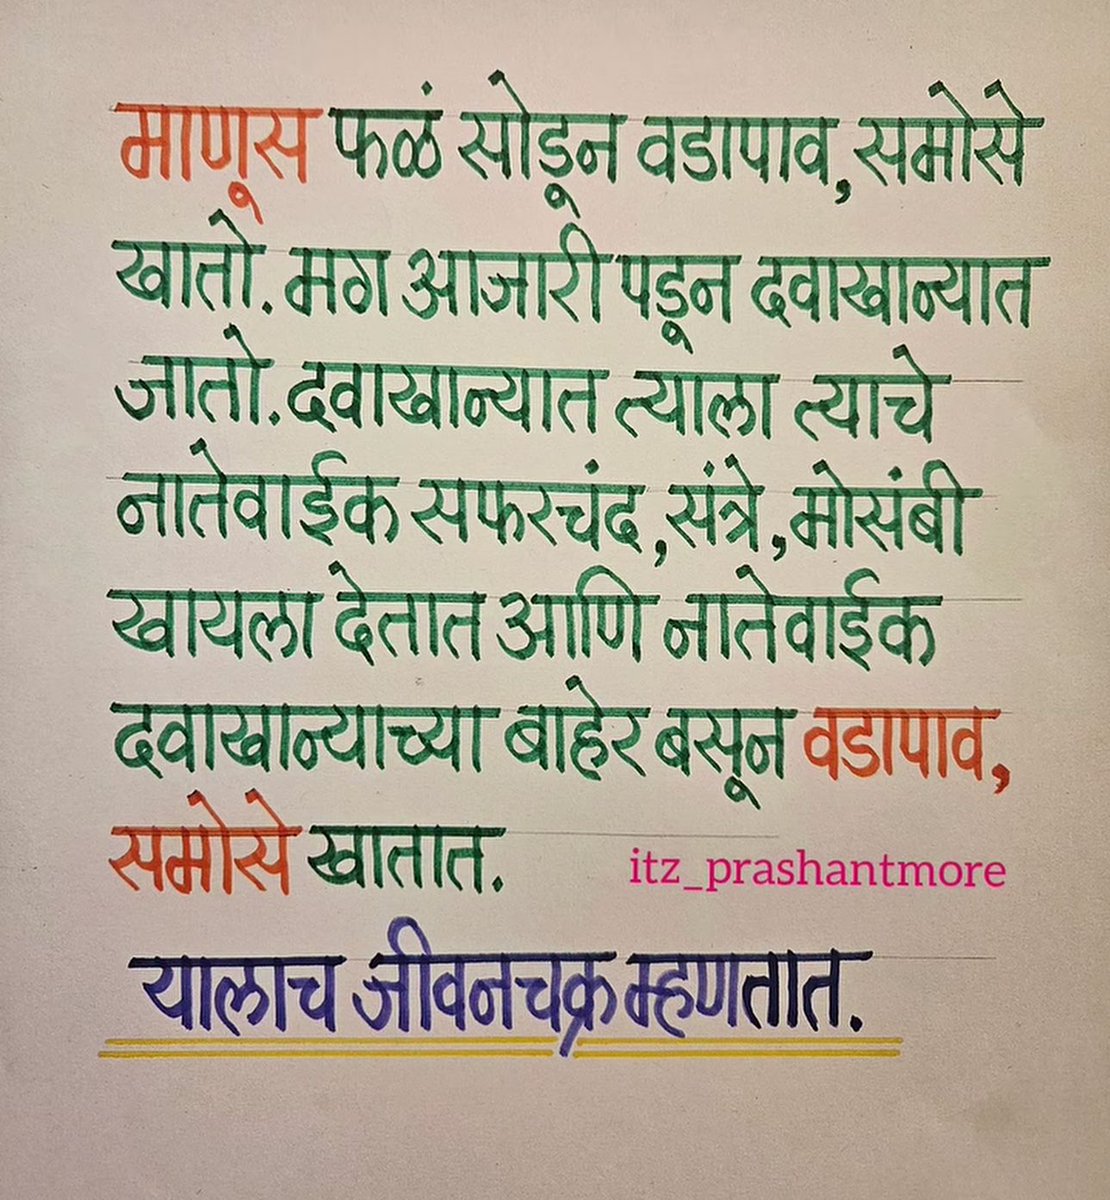 माणूस फळं सोडून वडापाव, समोसे
खातो. मग आजारी पडून दवाखान्यात
जातो. दवाखान्यात त्याला त्याचे
नातेवाईक सफरचंद, संत्रे, मोसंबी
खायला देतात आणि नातेवाईक
दवाखान्याच्या बाहेर बसून वडापाव,
समोसे खातात.
itz_prashantmore
यालाच जीवनचक्र म्हणतात.